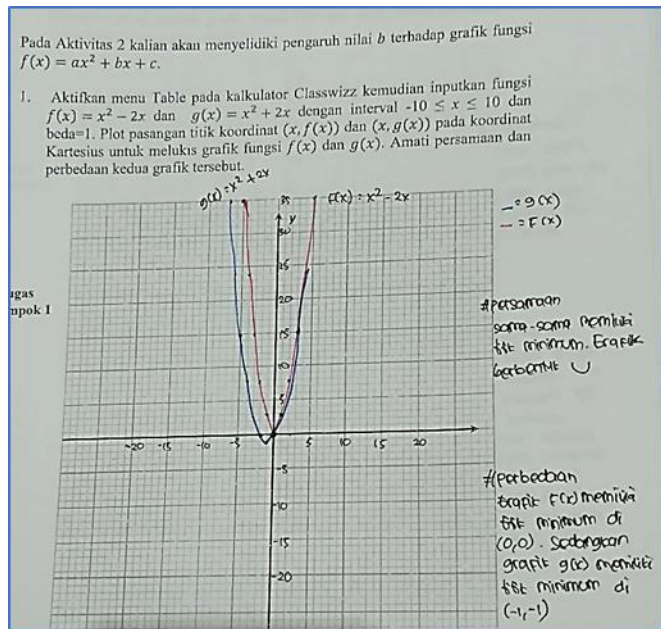 Pada Aktivitas 2 kalian akan menyelidiki pengaruh nilai b terhadap grafik fungsi
f(x) = ax² + bx + c.
1. Aktifkan menu Table pada kalkulator Classwizz kemudian inputkan fungsi
f(x) = x² − 2x dan g(x) = x² + 2x dengan interval -10 ≤ x ≤ 10 dan
beda=1. Plot pasangan titik koordinat (x, f(x)) dan (x, g(x)) pada koordinat
Kartesius untuk melukis grafik fungsi f(x) dan g(x). Amati persamaan dan
perbedaan kedua grafik tersebut.
g(x) = x² + 2x
F(x) = x² - 2x
= g(x)
= F(x)
35
y
30
25
20
15
10
5
-20 -15 -10 -5 5 10 15 20
-5
-10
-15
-20
ugas
mpok 1
#persamaan
sama-sama memiliki
ttk minimum. Grafik
berbentuk U
#perbedaan
Grafik F(x) memiliki
ttk minimum di
(0,0). Sedangkan
grafik g(x) memiliki
ttk minimum di
(-1,-1)